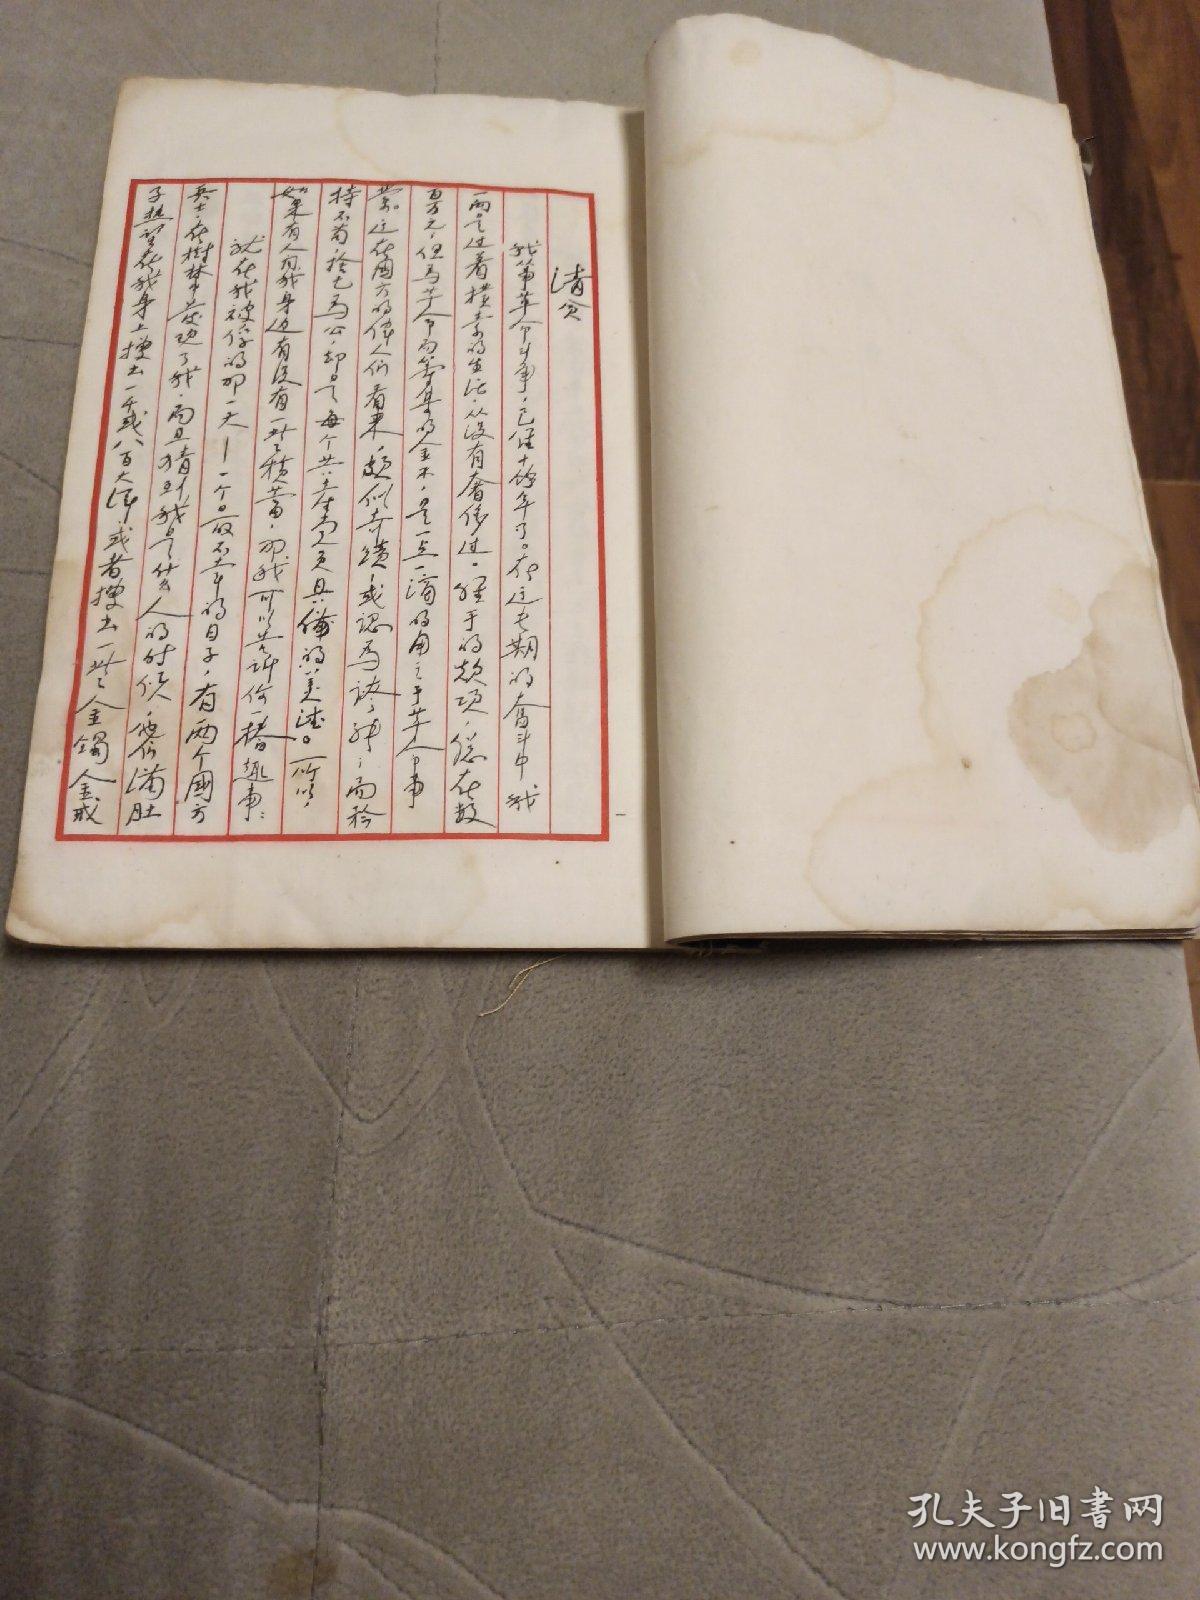 清贫
我从事革命斗争，已经十馀年了。在这长期的奋斗中，我
一向是过着朴素的生活，从没有奢侈过。经手的款项，总在数
百万元，但为革命而筹集的金钱，是一点一滴的用之于革命事
业。这在國方的伟人们看来，颇似奇蹟，或认为夸张；而矜
持不苟，舍己为公，却是每个共产党员具备的美德。所以，
如果有人问我身边有没有一些积蓄，那我可以告诉你一桩趣事：
就在我被俘的那一天——一个最不幸的日子，有两个國方
兵士，在樹林中发现了我，而且猜到我是什么人的时候，他们满肚
子热望在我身上搜出一千或八百大洋，或者搜出一些金镯金戒
孔夫子旧书网
www.kongfz.com